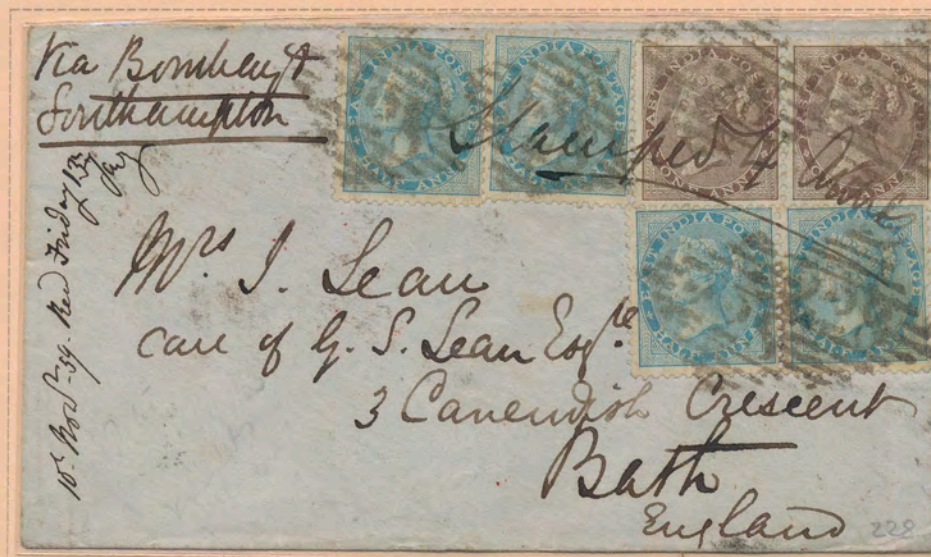 Via Bombay &
Southampton
Stamped 4 Annas
EAST INDIA POSTAGE
HALF ANNA
EAST INDIA POSTAGE
HALF ANNA
EAST INDIA POSTAGE
ONE ANNA
EAST INDIA POSTAGE
ONE ANNA
EAST INDIA POSTAGE
HALF ANNA
EAST INDIA POSTAGE
HALF ANNA
Mrs J. Lean
care of G. S. Lean Esqre
3 Cavendish Crescent
Bath
England
Novr 59. Recd Friday 13
228